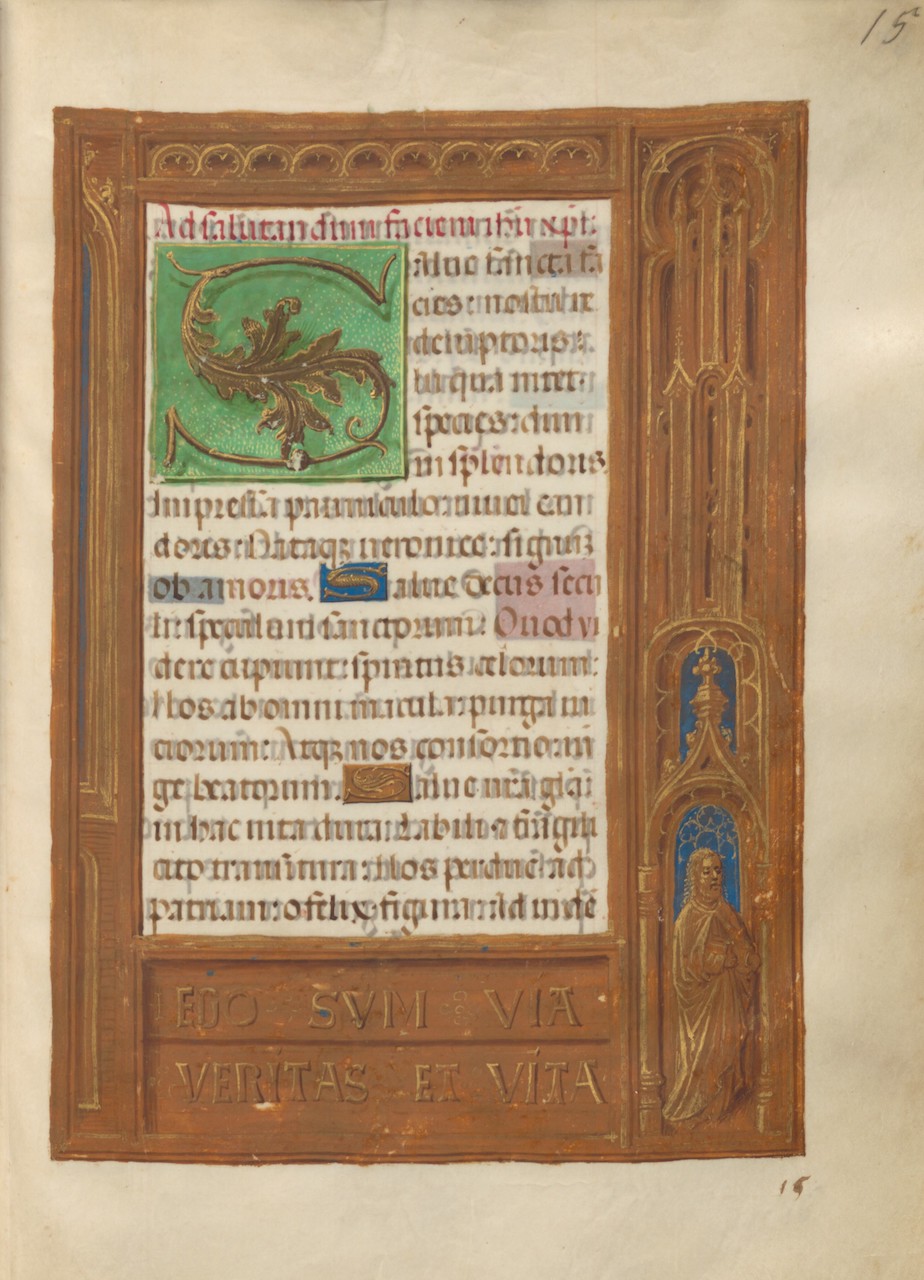 15
Ad salutandum faciem ihu xpi:
Salue sancta fa
cies: nostri
redemptoris:
In qua nitet:
species: diuini
splendoris
Impressa panniculo: niuei can
doris: Dataq3 ueronice: signū3
ob amoris. Salue decus secu
li: speculum sanctorum: Quod vi
dere cupiunt: spiritus celorum:
Nos ab omni macula: purga ui
ciorum: Atq3 nos consorcio: iū
ge beatorum. Salue nrā gl̄ia:
in hac uita dura: Labili et fragili
cito transitura: Nos perduc ad
patriam: o felix figura: Ad uidē
EDO SVM VIA
VERITAS ET VITA
16